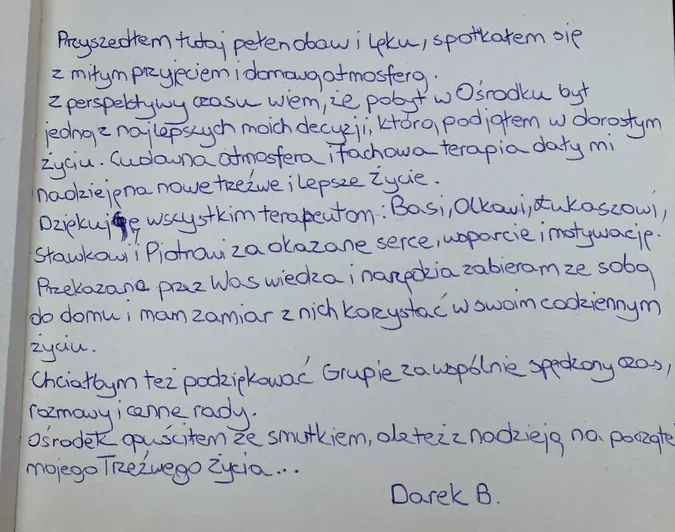 Przyszedłem tutaj pełen obaw i lęku, spotkałem się
z miłym przyjęciem i domową atmosferą.
Z perspektywy czasu wiem, że pobyt w Ośrodku był
jedną z najlepszych moich decyzji, którą podjąłem w dorosłym
życiu. Cudowna atmosfera i fachowa terapia dały mi
nadzieję na nowe trzeźwe i lepsze życie.
Dziękuję wszystkim terapeutom: Basi, Olkowi, Łukaszowi,
Sławkowi i Piotrowi za okazane serce, wsparcie i motywację.
Przekazaną przez Was wiedzę i narzędzia zabieram ze sobą
do domu i mam zamiar z nich korzystać w swoim codziennym
życiu.
Chciałbym też podziękować Grupie za wspólnie spędzony czas,
rozmowy i cenne rady.
Ośrodek opuściłem ze smutkiem, ale też z nadzieją na począte
mojego Trzeźwego Życia...
Darek B.